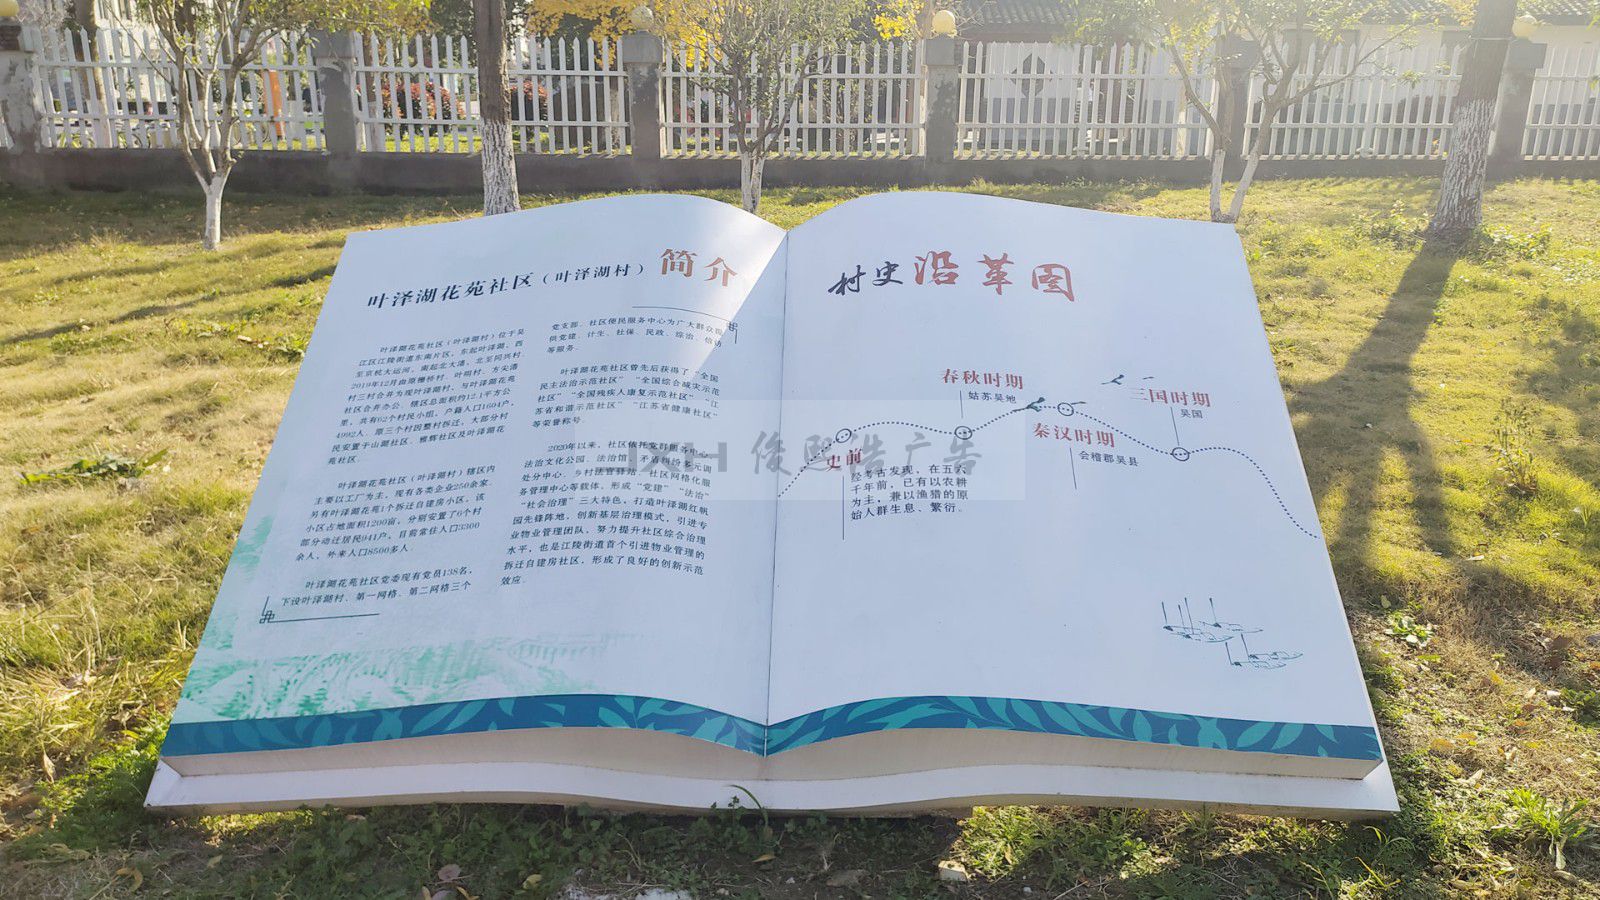 叶泽湖花苑社区（叶泽湖村）简介
叶泽湖花苑社区（叶泽湖村）位于吴
江区江陵街道东南片区，东起叶泽湖，西
至京杭大运河，南起北大港，北至同兴村.
2019年12月由原栅桥村、叶明村、方尖港
村三村合并为现叶泽湖村，与叶泽湖花苑
社区合并办公. 辖区总面积约12.1平方公
里，共有62个村民小组，户籍人口1604户，
4992人. 原三个村因整村拆迁，大部分村
民安置于山湖社区、雅辉社区及叶泽湖花
苑社区.
叶泽湖花苑社区（叶泽湖村）辖区内
主要以工厂为主，现有各类企业250余家.
另有叶泽湖花苑1个拆迁自建房小区，该
小区占地面积1200亩，分别安置了6个村
部分动迁居民941户，目前常住人口3300
余人，外来人口8500多人.
叶泽湖花苑社区党委现有党员138名，
下设叶泽湖村、第一网格、第二网格三个
党支部. 社区便民服务中心为广大群众提
供党建、计生、社保、民政、综治、信访
等服务.
叶泽湖花苑社区曾先后获得了“全国
民主法治示范社区”“全国综合减灾示范
社区”“全国残疾人康复示范社区”“江
苏省和谐示范社区”“江苏省健康社区”
等荣誉称号.
2020年以来，社区依托党群服务中心、
法治文化公园、法治馆、矛盾纠纷多元调
处分中心、乡村法官驿站、社区网格化服
务管理中心等载体，形成“党建”“法治”
“社会治理”三大特色，打造叶泽湖红帆
园先锋阵地，创新基层治理模式，引进专
业物业管理团队，努力提升社区综合治理
水平，也是江陵街道首个引进物业管理的
拆迁自建房社区，形成了良好的创新示范
效应.
村史沿革图
史前
经考古发现，在五六
千年前，已有以农耕
为主，兼以渔猎的原
始人群生息、繁衍.
春秋时期
姑苏吴地
秦汉时期
会稽郡吴县
三国时期
吴国
俊熙浩广告